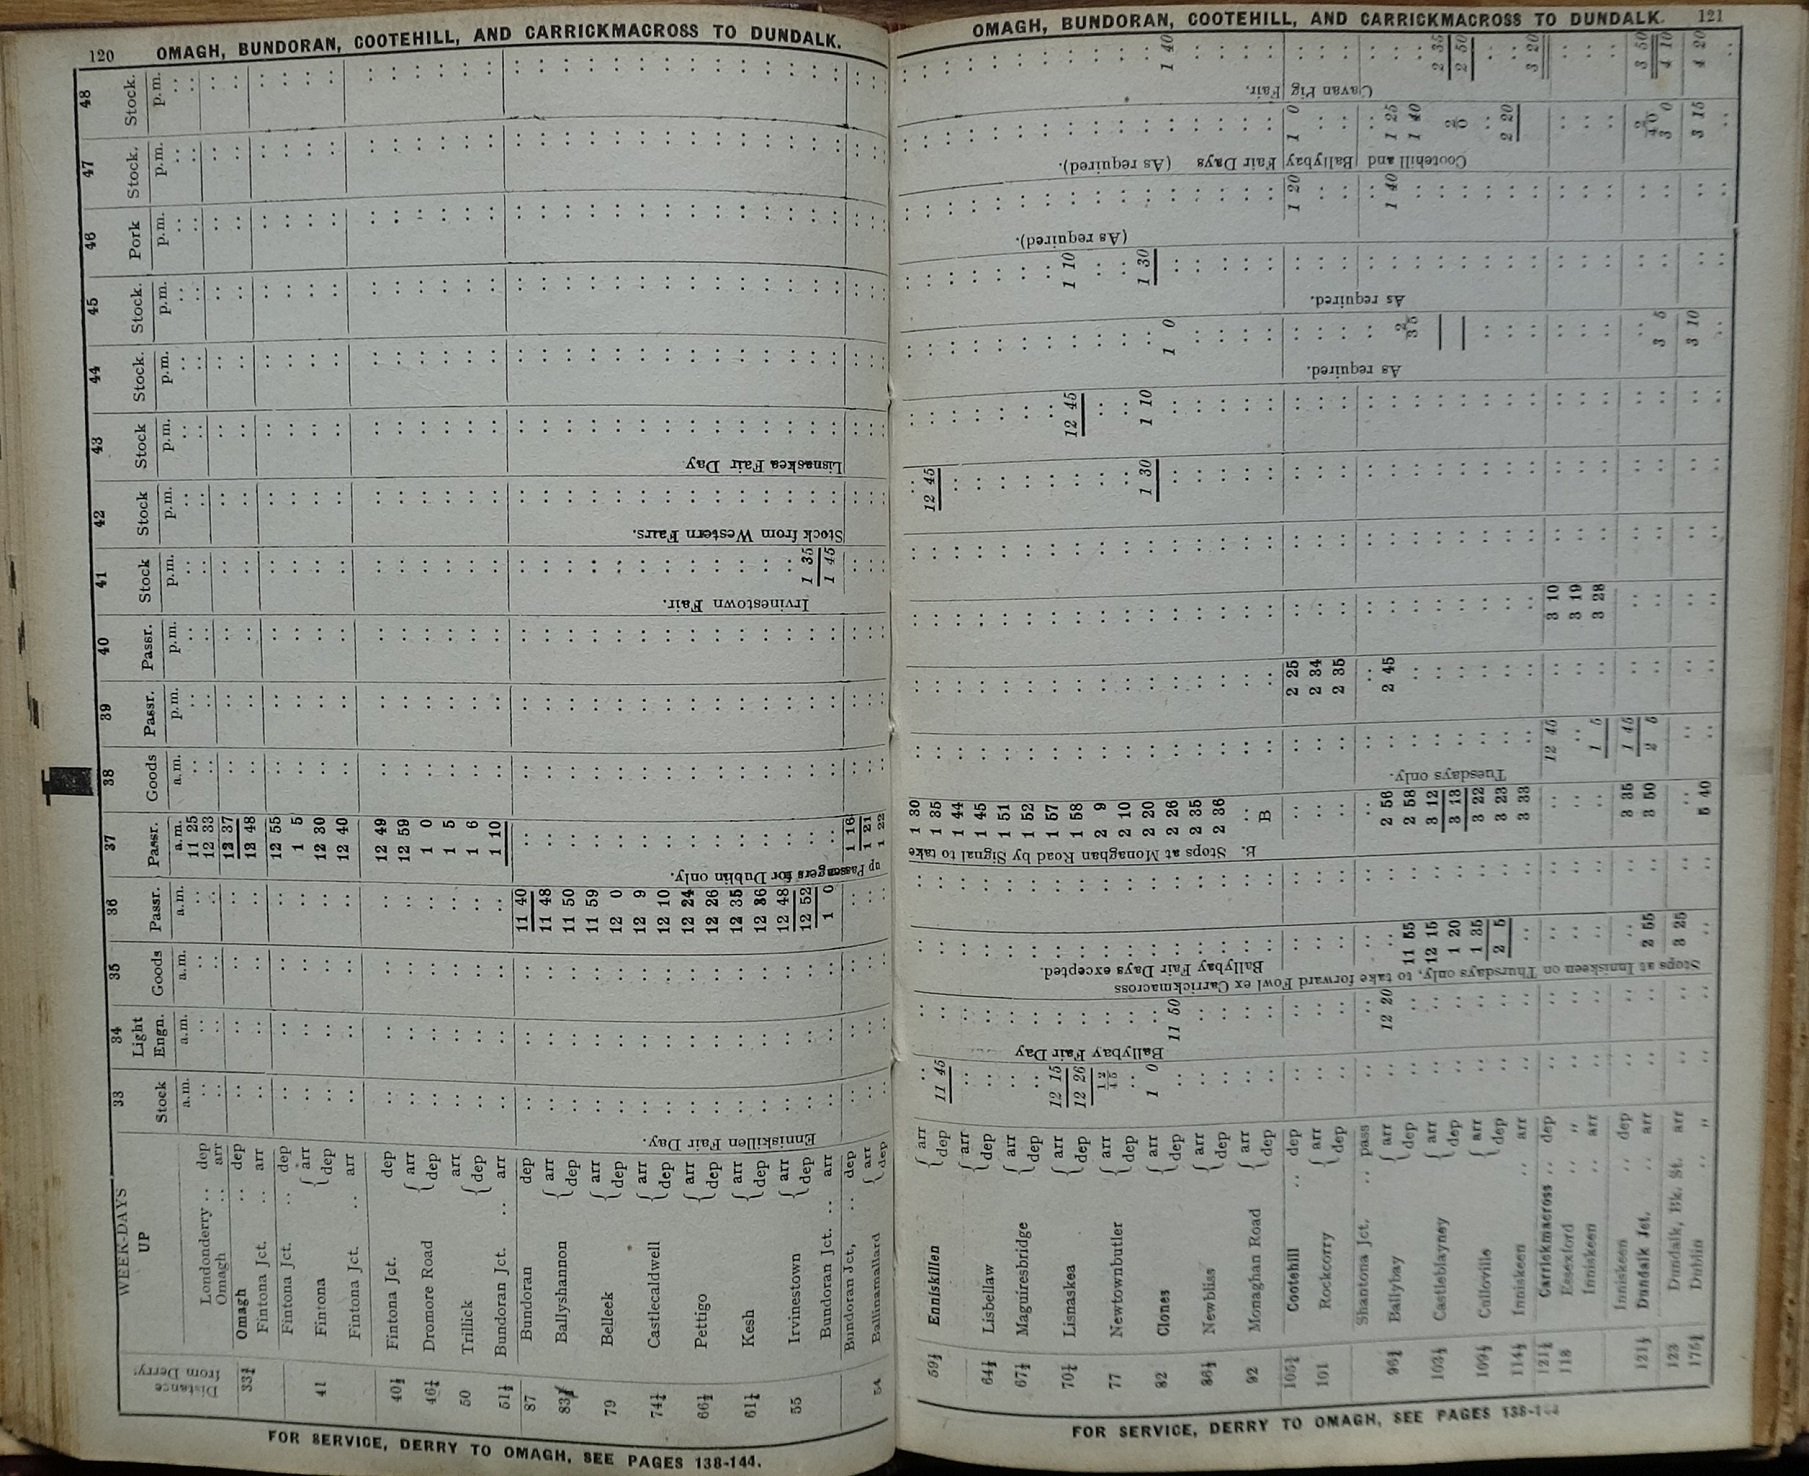 120 OMAGH, BUNDORAN, COOTEHILL, AND CARRICKMACROSS TO DUNDALK.
WEEK-DAYS
UP
Distance from Derry.
33 Stock a.m.
34 Light Engn. a.m.
35 Goods a.m.
36 Passr. a.m.
37 Passr. a.m.
38 Goods a.m.
39 Passr. p.m.
40 Passr. p.m.
41 Stock p.m.
42 Stock p.m.
43 Stock p.m.
44 Stock. p.m.
45 Stock. p.m.
46 Pork p.m.
47 Stock. p.m.
48 Stock. p.m.
Londonderry .. dep 11 25
Omagh .. arr 12 33
33¾ Omagh .. dep 12 37
Fintona Jct. .. arr 12 48
Fintona Jct. .. dep 12 55
41 Fintona { arr 1 5
dep 12 30
Fintona Jct. .. arr 12 40
40½ Fintona Jct. dep 12 49
46¼ Dromore Road { arr 12 59
dep 1 0
50 Trillick { arr 1 5
dep 1 6
51½ Bundoran Jct. .. arr 1 10
87 Bundoran dep 11 40
Ballyshannon { arr 11 48
dep 11 50
79 Belleek { arr 11 59
dep 12 0
74¼ Castlecaldwell { arr 12 9
dep 12 10
66½ Pettigo { arr 12 24
dep 12 26
61¼ Kesh { arr 12 35
dep 12 36
55 Irvinestown { arr 12 48
dep 12 52 1 35
Bundoran Jct. .. arr 1 0 1 45
Bundoran Jct., .. dep 1 16
54 Ballinamallard { arr 1 21
dep 1 22
Enniskillen Fair Day.
up Passengers for Dublin only.
Irvinestown Fair.
Stock from Western Fairs.
Lisnaskea Fair Day
FOR SERVICE, DERRY TO OMAGH, SEE PAGES 138-144.
OMAGH, BUNDORAN, COOTEHILL, AND CARRICKMACROSS TO DUNDALK. 121
59½ Enniskillen { arr .. 1 30
dep 11 45 1 35 12 45
64½ Lisbellaw { arr 1 44
dep 1 45
67½ Maguiresbridge { arr 1 51
dep 1 52
70¼ Lisnaskea { arr 12 15 1 57
dep 12 26 1 58 12 45 1 10
77 Newtownbutler { arr 2 9
dep 2 10
82 Clones { arr 1 0 2 20 1 30 1 10 1 30
dep 11 50 2 26 1 0 1 40
86½ Newbliss { arr 2 35
dep 2 36
92 Monaghan Road { arr ..
dep B
105¼ Cootehill .. dep 2 25 1 20 1 0
101 Rockcorry { arr 2 34
dep 2 35
Shantona Jct. .. pass
96¾ Ballybay { arr 12 20 2 56 2 45 1 40 1 25
dep 11 55 2 58 1 40
103½ Castleblayney { arr 12 15 3 12 2 35
dep 1 20 3 13 2 50
109½ Culloville { arr 1 35 3 22
dep 2 5 3 23
114½ Inniskeen .. arr 3 33 2 20 3 20
121¼ Carrickmacross .. dep 12 45 3 10
118 Essexford .. ,, 3 19
Inniskeen .. arr 1 5 3 28
Inniskeen .. dep 3 35 1 45 3 50
121½ Dundalk Jct. .. arr 2 55 3 50 2 5 3 5 3 0 4 10
123 Dundalk, Bk. St. arr 3 25 3 10 3 15 4 20
175¼ Dublin .. ,, 5 40
Ballybay Fair Day
Stops at Inniskeen on Thursdays only, to take forward Fowl ex Carrickmacross
Ballybay Fair Days excepted.
B. Stops at Monaghan Road by Signal to take
Tuesdays only.
As required.
As required.
(As required).
Cootehill and Ballybay Fair Days (As required).
Cavan Pig Fair.
FOR SERVICE, DERRY TO OMAGH, SEE PAGES 138-144